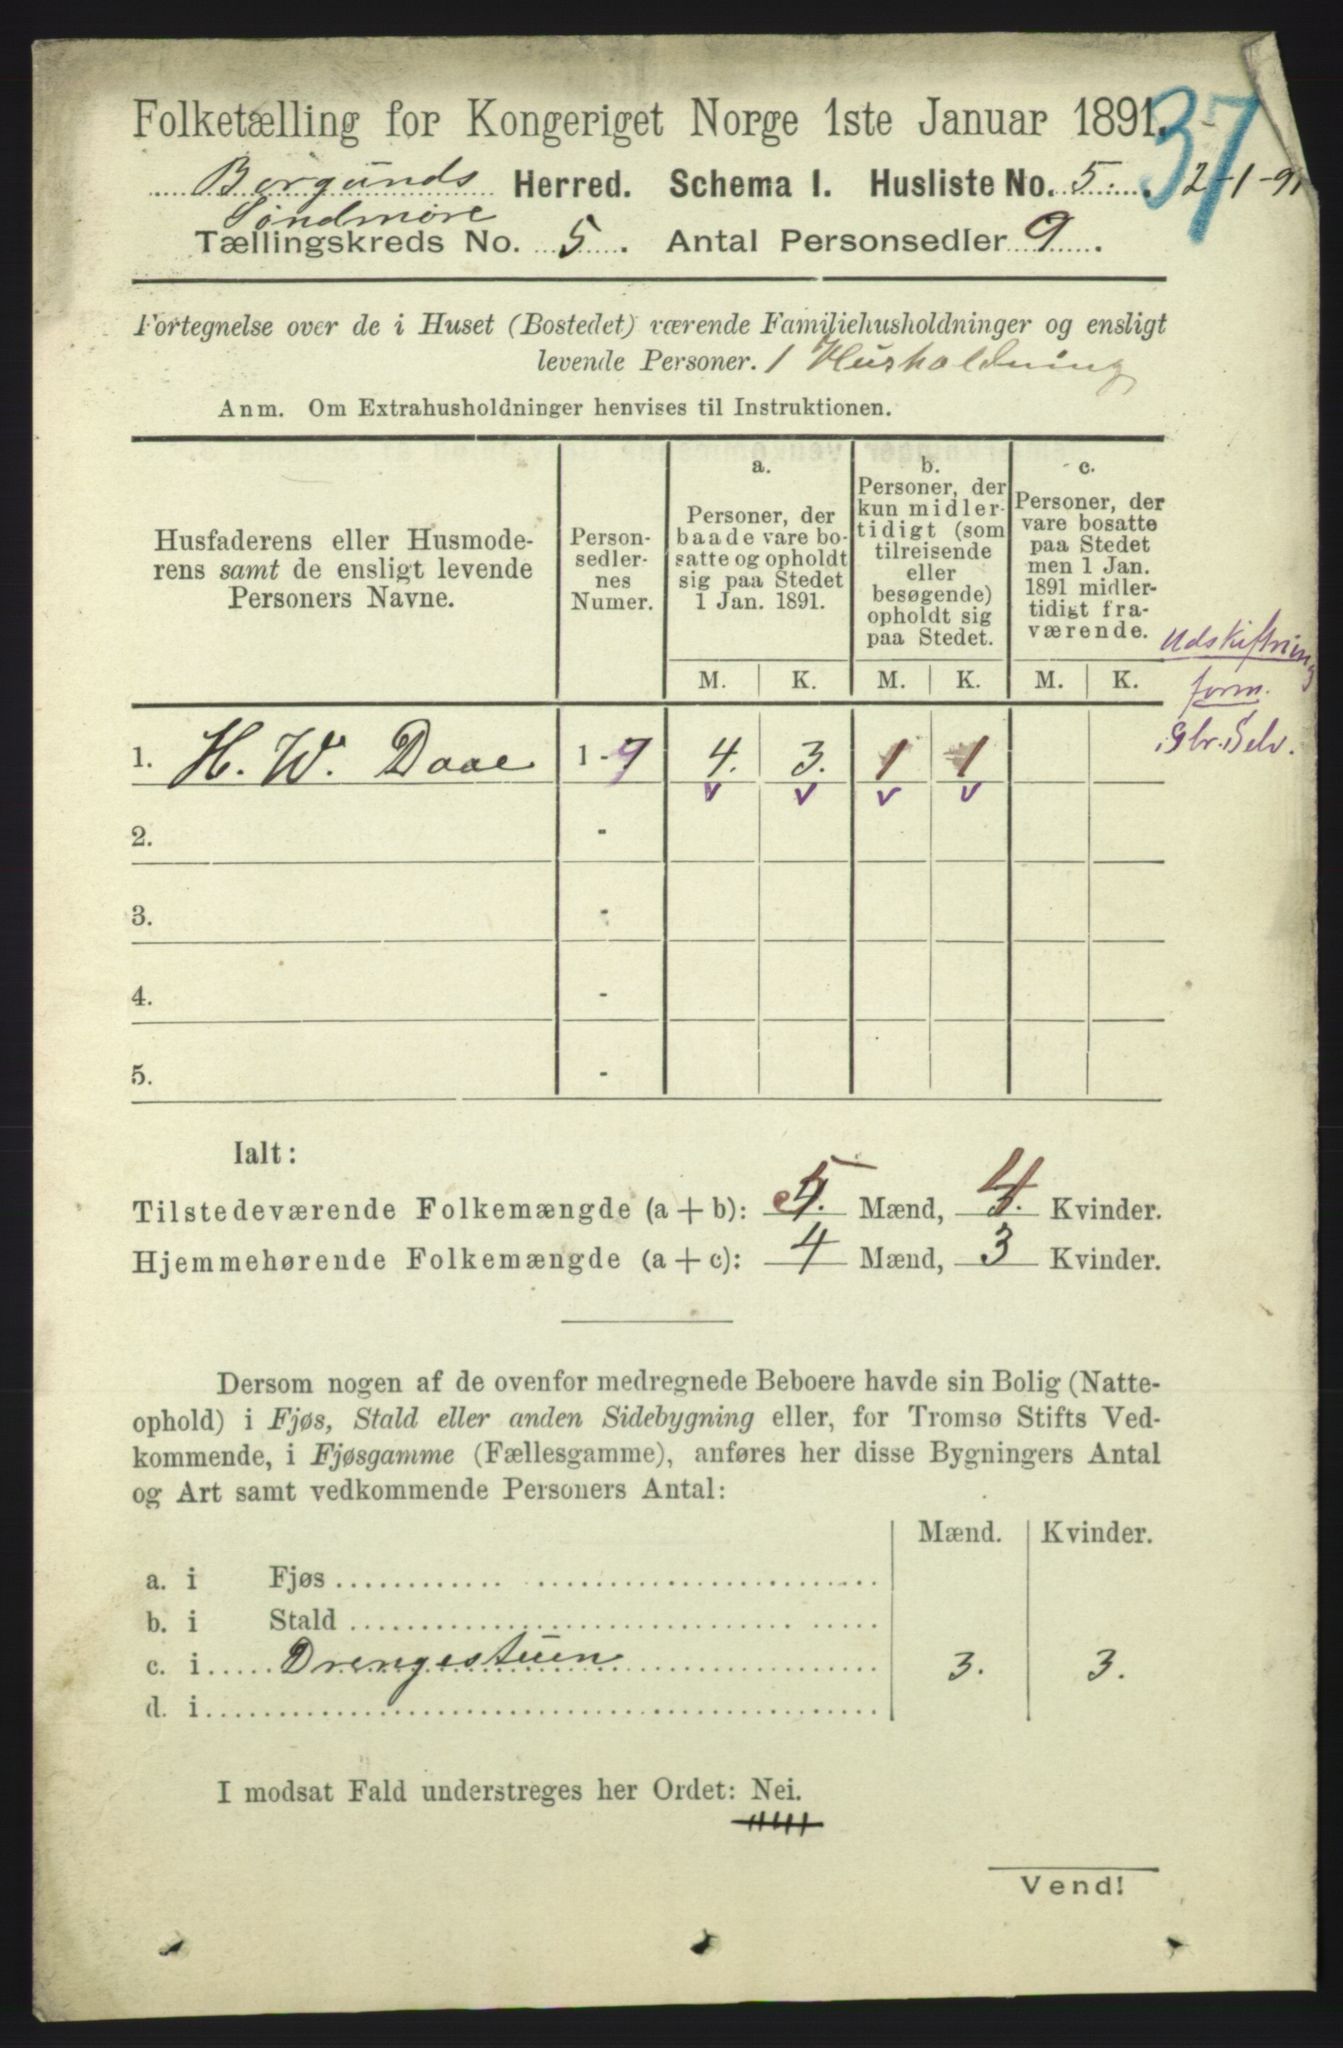 Folketælling for Kongeriget Norge 1ste Januar 1891.
37
Borgunds Herred. Schema I. Husliste No. 5. 2-1-91
Søndmøre
Tællingskreds No. 5. Antal Personsedler 9.
Fortegnelse over de i Huset (Bostedet) værende Familiehusholdninger og ensligt
levende Personer. 1 Husholdning
Anm. Om Extrahusholdninger henvises til Instruktionen.
Husfaderens eller Husmode-
rens samt de ensligt levende
Personers Navne.
Person-
sedler-
nes
Numer.
a.
Personer, der
baade vare bo-
satte og opholdt
sig paa Stedet
1 Jan. 1891.
b.
Personer, der
kun midler-
tidigt (som
tilreisende
eller
besøgende)
opholdt sig
paa Stedet.
c.
Personer, der
vare bosatte
paa Stedet
men 1 Jan.
1891 midler-
tidigt fra-
værende.
M. K. M. K. M. K.
Udskiftning
form.
Gbr. Selv.
1. H. W. Daae 1-9 4. 3. 1 1
v v v v
2. -
3. -
4. -
5. -
Ialt:
Tilstedeværende Folkemængde (a + b): 5. Mænd, 4. Kvinder.
Hjemmehørende Folkemængde (a + c): 4 Mænd, 3 Kvinder.
Dersom nogen af de ovenfor medregnede Beboere havde sin Bolig (Natte-
ophold) i Fjøs, Stald eller anden Sidebygning eller, for Tromsø Stifts Ved-
kommende, i Fjøsgamme (Fællesgamme), anføres her disse Bygningers Antal
og Art samt vedkommende Personers Antal:
Mænd. Kvinder.
a. i Fjøs
b. i Stald
c. i Drengestuen 3. 3.
d. i
I modsat Fald understreges her Ordet: Nei.
Vend!